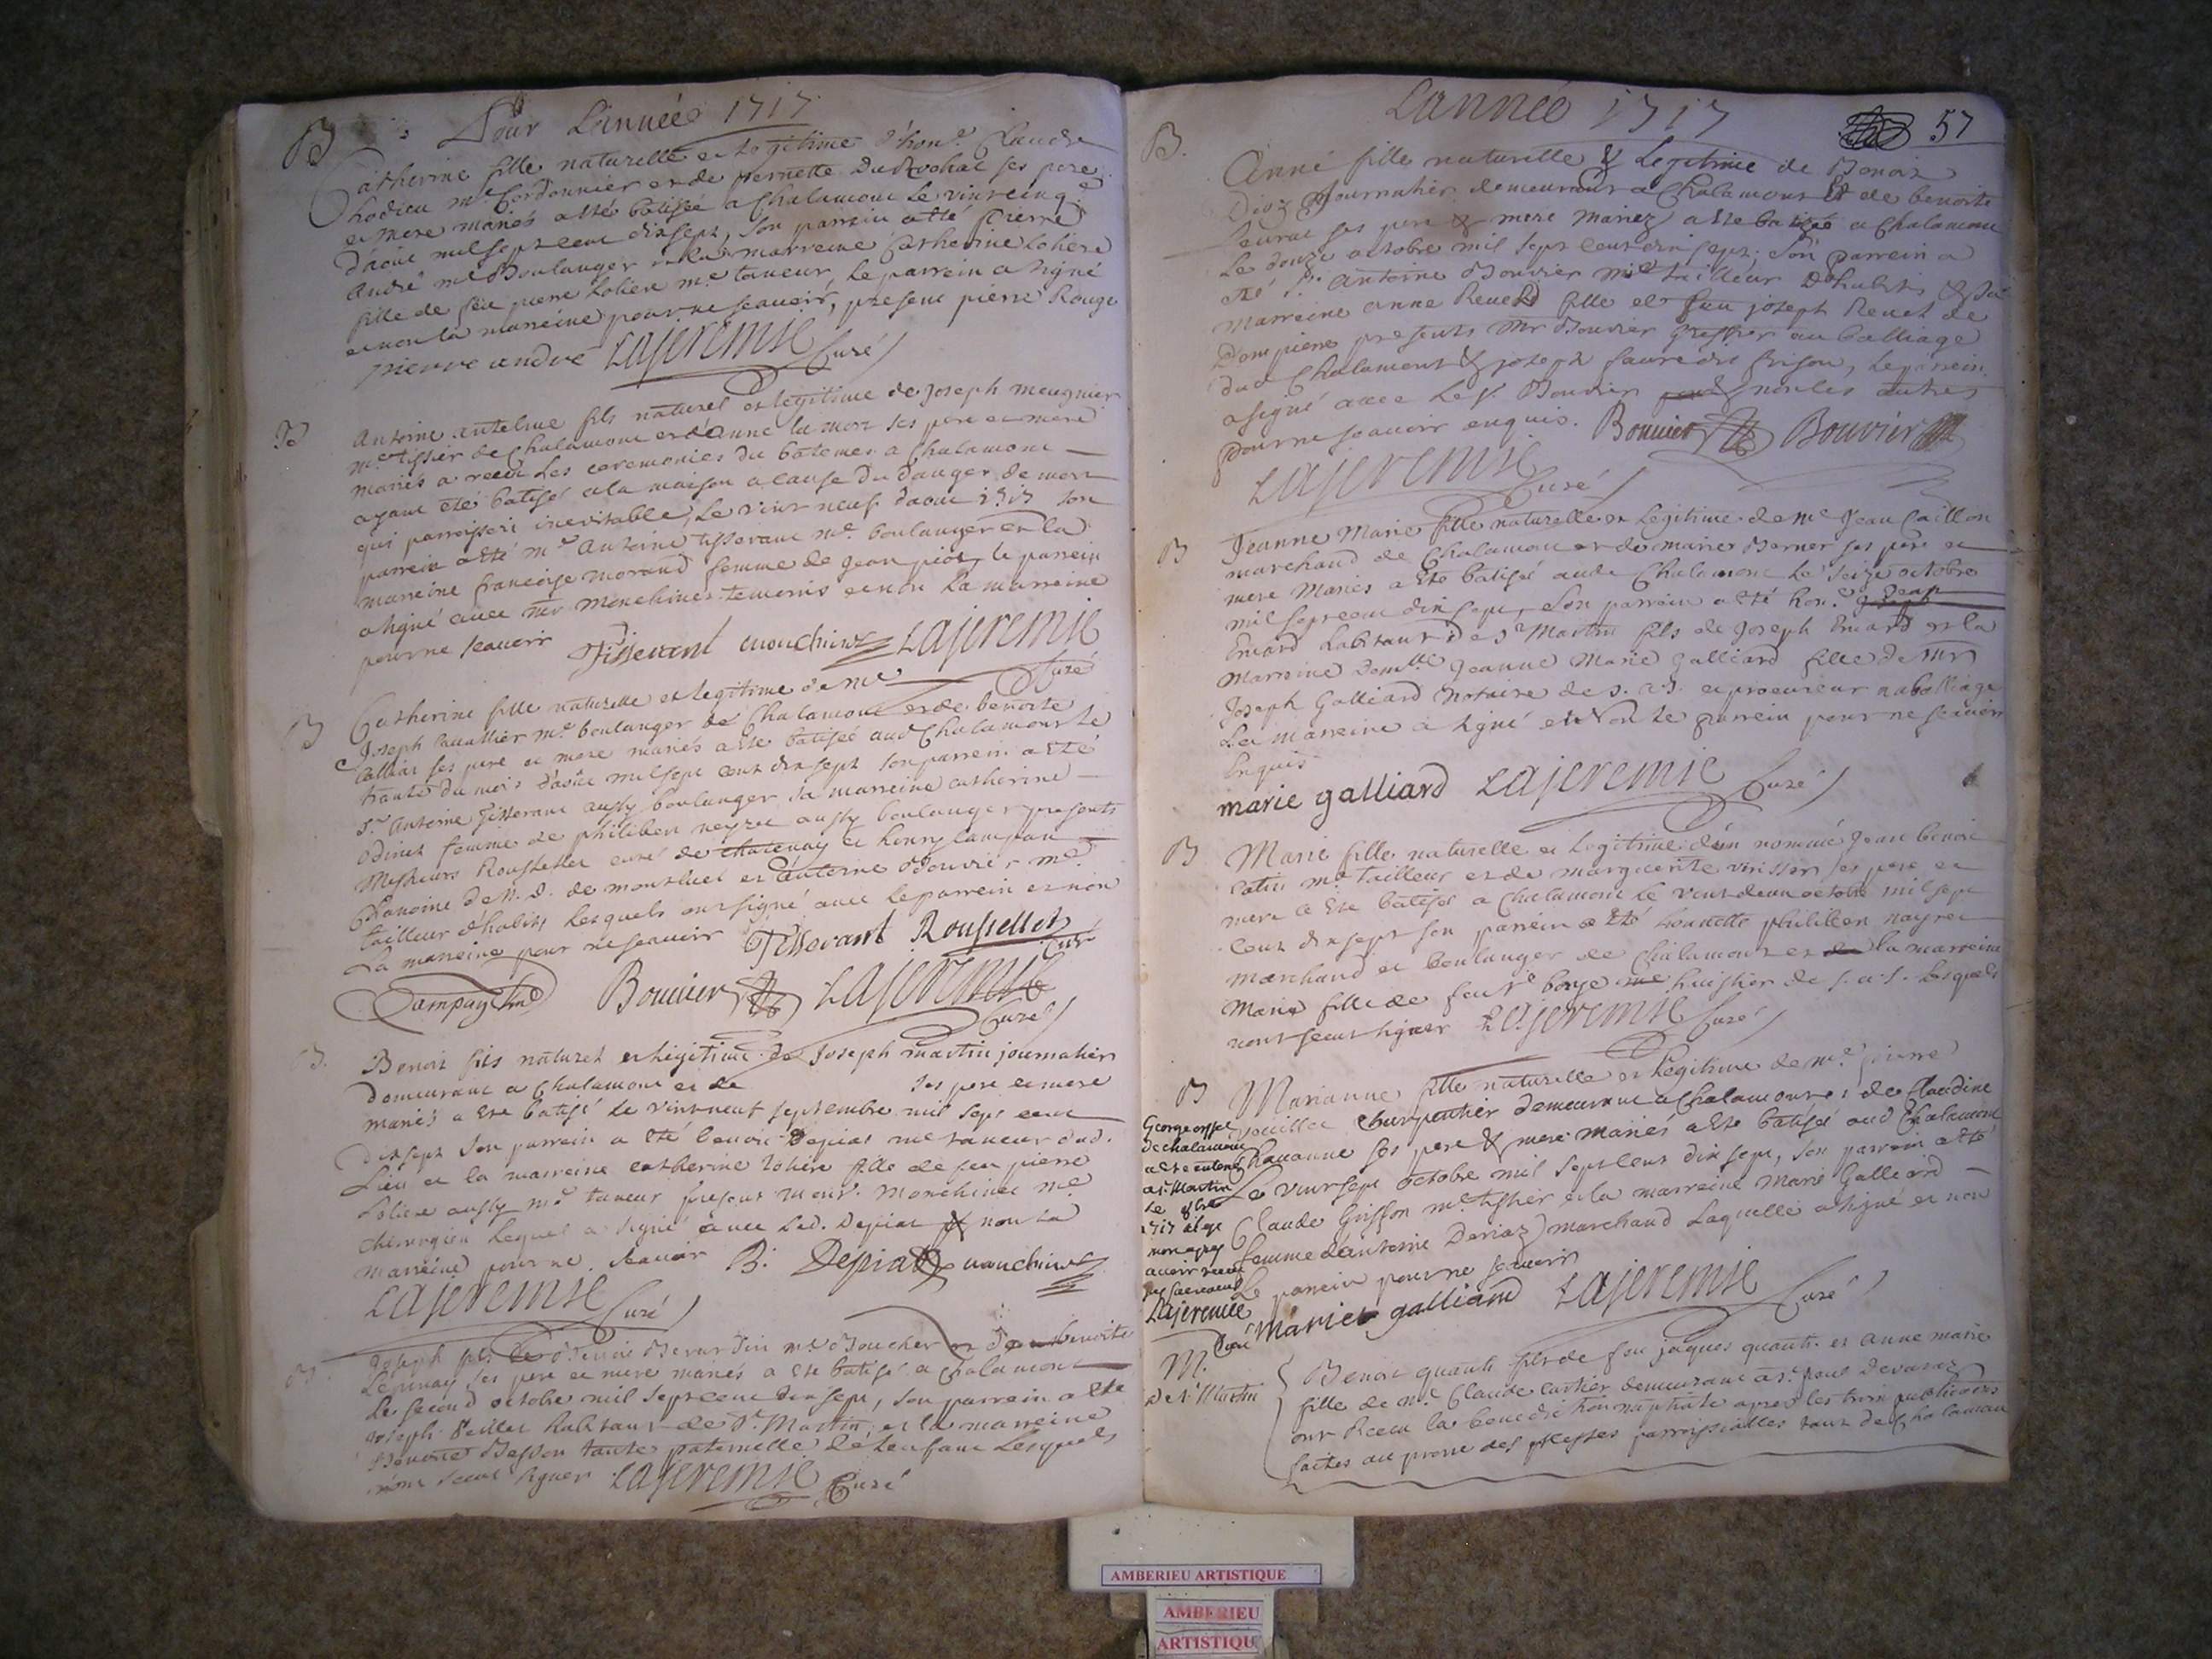 B
Pour L'année 1717
Catherine fille naturelle et Legitime d'hon.e Claude
hodieu m.e Cordonnier et de pernette Du Rochat ses pere
et mere mariés a esté batisée a Chalamont Le vint cinq.e
d'aout mil sept cent dix sept, son parrein a eté pierre
André m.e Boulanger et la marreine Catherine Loliere
fille de feu pierre Loliere m.e taneur, Le parrein a signé
et non la marreine pour ne scavoir, present pierre Rouge
pierre andré Lajeremie Curé
B
Antoine antelme fils naturel et legitime de Joseph meugnier
m.e tissier de Chalamont et d'anne la mort ses pere et mere
mariés a receu Les ceremonies du bateme a Chalamont
ayant été batisé a la maison a cause du danger de mort
qui parroissoit inevitable, Le vint neuf d'aout 1717 son
parrein a été m.e Antoine tisserant m.e boulanger et la
marreine francoise morand femme de Jean piot, le parrein
a signé avec mr monchinet temoins et non La marreine
pour ne scavoir Tisserant monchinet Lajeremie
Curé
B
Catherine fille naturelle et legitime de m.e
Joseph Cavallier m.e boulanger de Chalamont et de benoite
ses pere et mere mariés a esté batisée aud Chalamont le
trante du mois d'aout mil sept cent dix sept son parrein a eté
s.r Antoine Tisserant aussy boulanger sa marreine catherine
odinet femme de philibert neyret aussy boulanger presents
Messieurs Rousselet curé de chatenay et henry campan
Chanoine de N. D. de montluel et antoine Bouvier m.e
tailleur d'habits Lesquels ont signé avec le parrein et non
La marreine pour ne scavoir Tisserant Rousselet
Curé
Bouvier Lajeremie
Curé
B.
Benoit fils naturel et legitime de Joseph martin journalier
Demeurant a Chalamont et de ses pere et mere
mariés a esté batisé Le vint neuf septembre mil sept cent
dix sept son parrein a eté benoit Depiat m.e taneur dud.
Lieu et la marreine catherine Loliere fille de feu pierre
Loliere aussy m.e taneur present mons.r Monchinet m.e
chirurgien Lequel a signé avec Led. Depiat & non la
marreine pour ne scavoir B. Depiat monchinet
Lajeremie Curé
B.
Joseph fils de Benoit Bernardin m.e Boucher et de benoite
Lepinay ses pere et mere mariés a esté batisé a Chalamont
Le second octobre mil sept cent dix sept, son parrein a esté
Joseph habitant de S.t Martin, et la marreine
Benoite Besson tante paternelle de Lenfant Lesquels
n'ont sceut signer Lajeremie Curé
L'année 1717
57
B.
Anne fille naturelle & Legitime de Benoit
journalier demeurant a Chalamont Et de benoite
ses pere & mere Mariez a este batizée a Chalamont
Le douze octobre mil sept cent dix sept; Son parrein a
eté s.r Antoine Bouvier m.e tailleur D'habits & sa
Marreine anne Revel fille de feu joseph Revel de
Dompierre presents Mr Bouvier Greffier au balliage
dud Chalamont & joseph faure dit frison, Le parrein
a signé avec Le s.r Bouvier non les autres
pour ne scavoir enquis. Bouvier Bouvier
Lajeremie
Curé
B
Jeanne Marie fille naturelle et Legitime de m.e Jean Caillon
marchand de Chalamont et de marie Berner ses pere et
mere Mariés a esté batisée aud Chalamont Le seize octobre
mil sept cent dix sept, son parrein a eté hon.e Jean
Emard habitant de S.t Martin fils de Joseph Emard et la
Marreine Dem.lle Jeanne Marie Galliard fille de Mr
Joseph Galliard Notaire de S. A. S. et procureur au balliage
La marreine a signé et Non le parrein pour ne scavoir
Enquis
marie galliard Lajeremie Curé
B
Marie fille naturelle et Legitime d'un nommé Jean benoit
m.e tailleur et de marguerite ses pere et
mere a esté batisée a Chalamont Le vint deux octobre mil sept
cent dix sept son parrein a eté honnette philibert neyret
marchand et boulanger de Chalamont et la marreine
Marie fille de feu huissier de S. A. S. Lesquels
n'ont sceut signer Lajeremie Curé
B
Marianne fille naturelle et Legitime de m.e pierre
Charpentier demeurant a Chalamont et de Claudine
Chavanne ses pere & mere Mariés a este batisée aud Chalamont
Le vint sept octobre mil sept cent dix sept, son parrein a eté
Claude Grisson m.e tissier et la marreine Marie Galliard
femme d'antoine Deriaz marchand Laquelle a signé et non
Le parrein pour ne scavoir
marie galliard Lajeremie Curé
George
de chalamont
a S.t Martin
1717
Lajeremie
Curé
M.
De S.t Martin
Benoit quanti fils de feu jaques quanti et anne marie
fille de m.e Claude cartier demeurant a S.t paul de varax
ont Receu la benediction nuptiale apres les trois publications
faites au prone des messes parroissialles tant de Chalamont
AMBERIEU ARTISTIQUE
AMBERIEU
ARTISTIQU